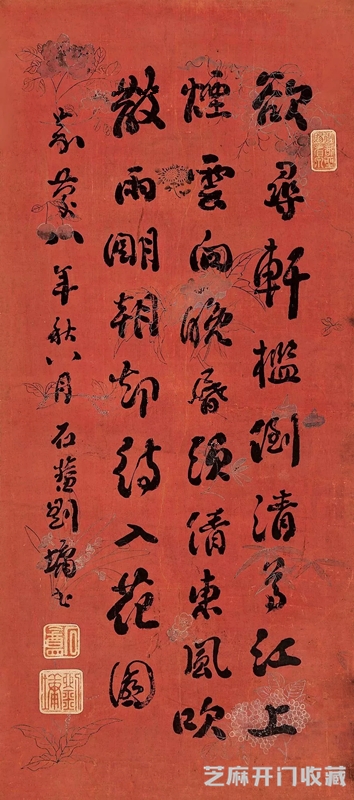 欲尋軒檻倒清尊江上
煙雲向晚昏須倩東風吹
散雨明朝却待入花園
嘉慶八年秋八月石菴劉墉書
芝麻开门收藏